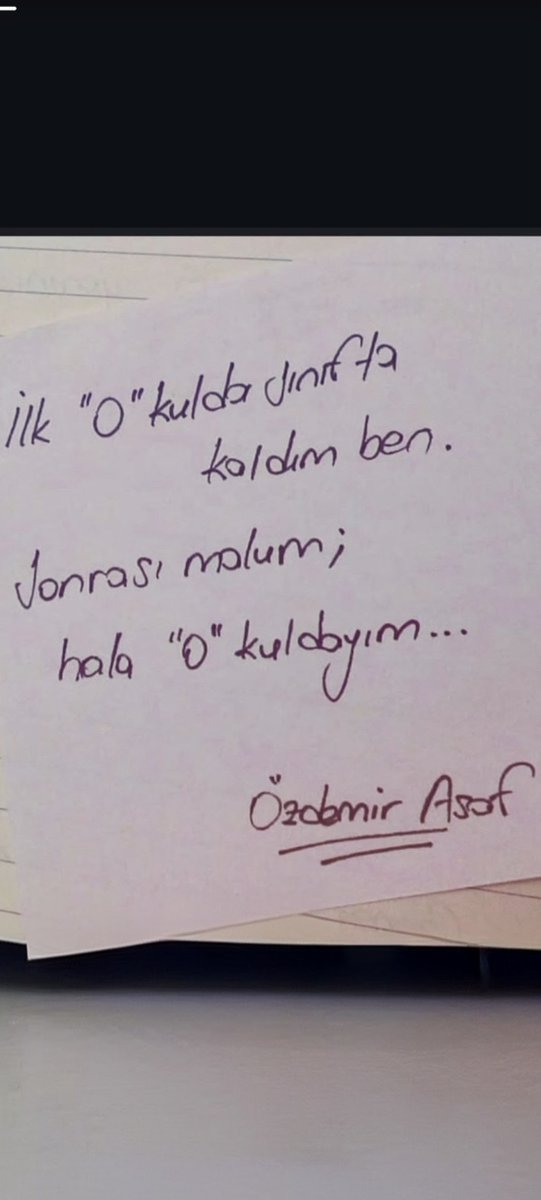 İlk "O"kulda sınıfta
kaldım ben.
Sonrası malum;
hala "O" kuldayım...
Özdemir Asaf